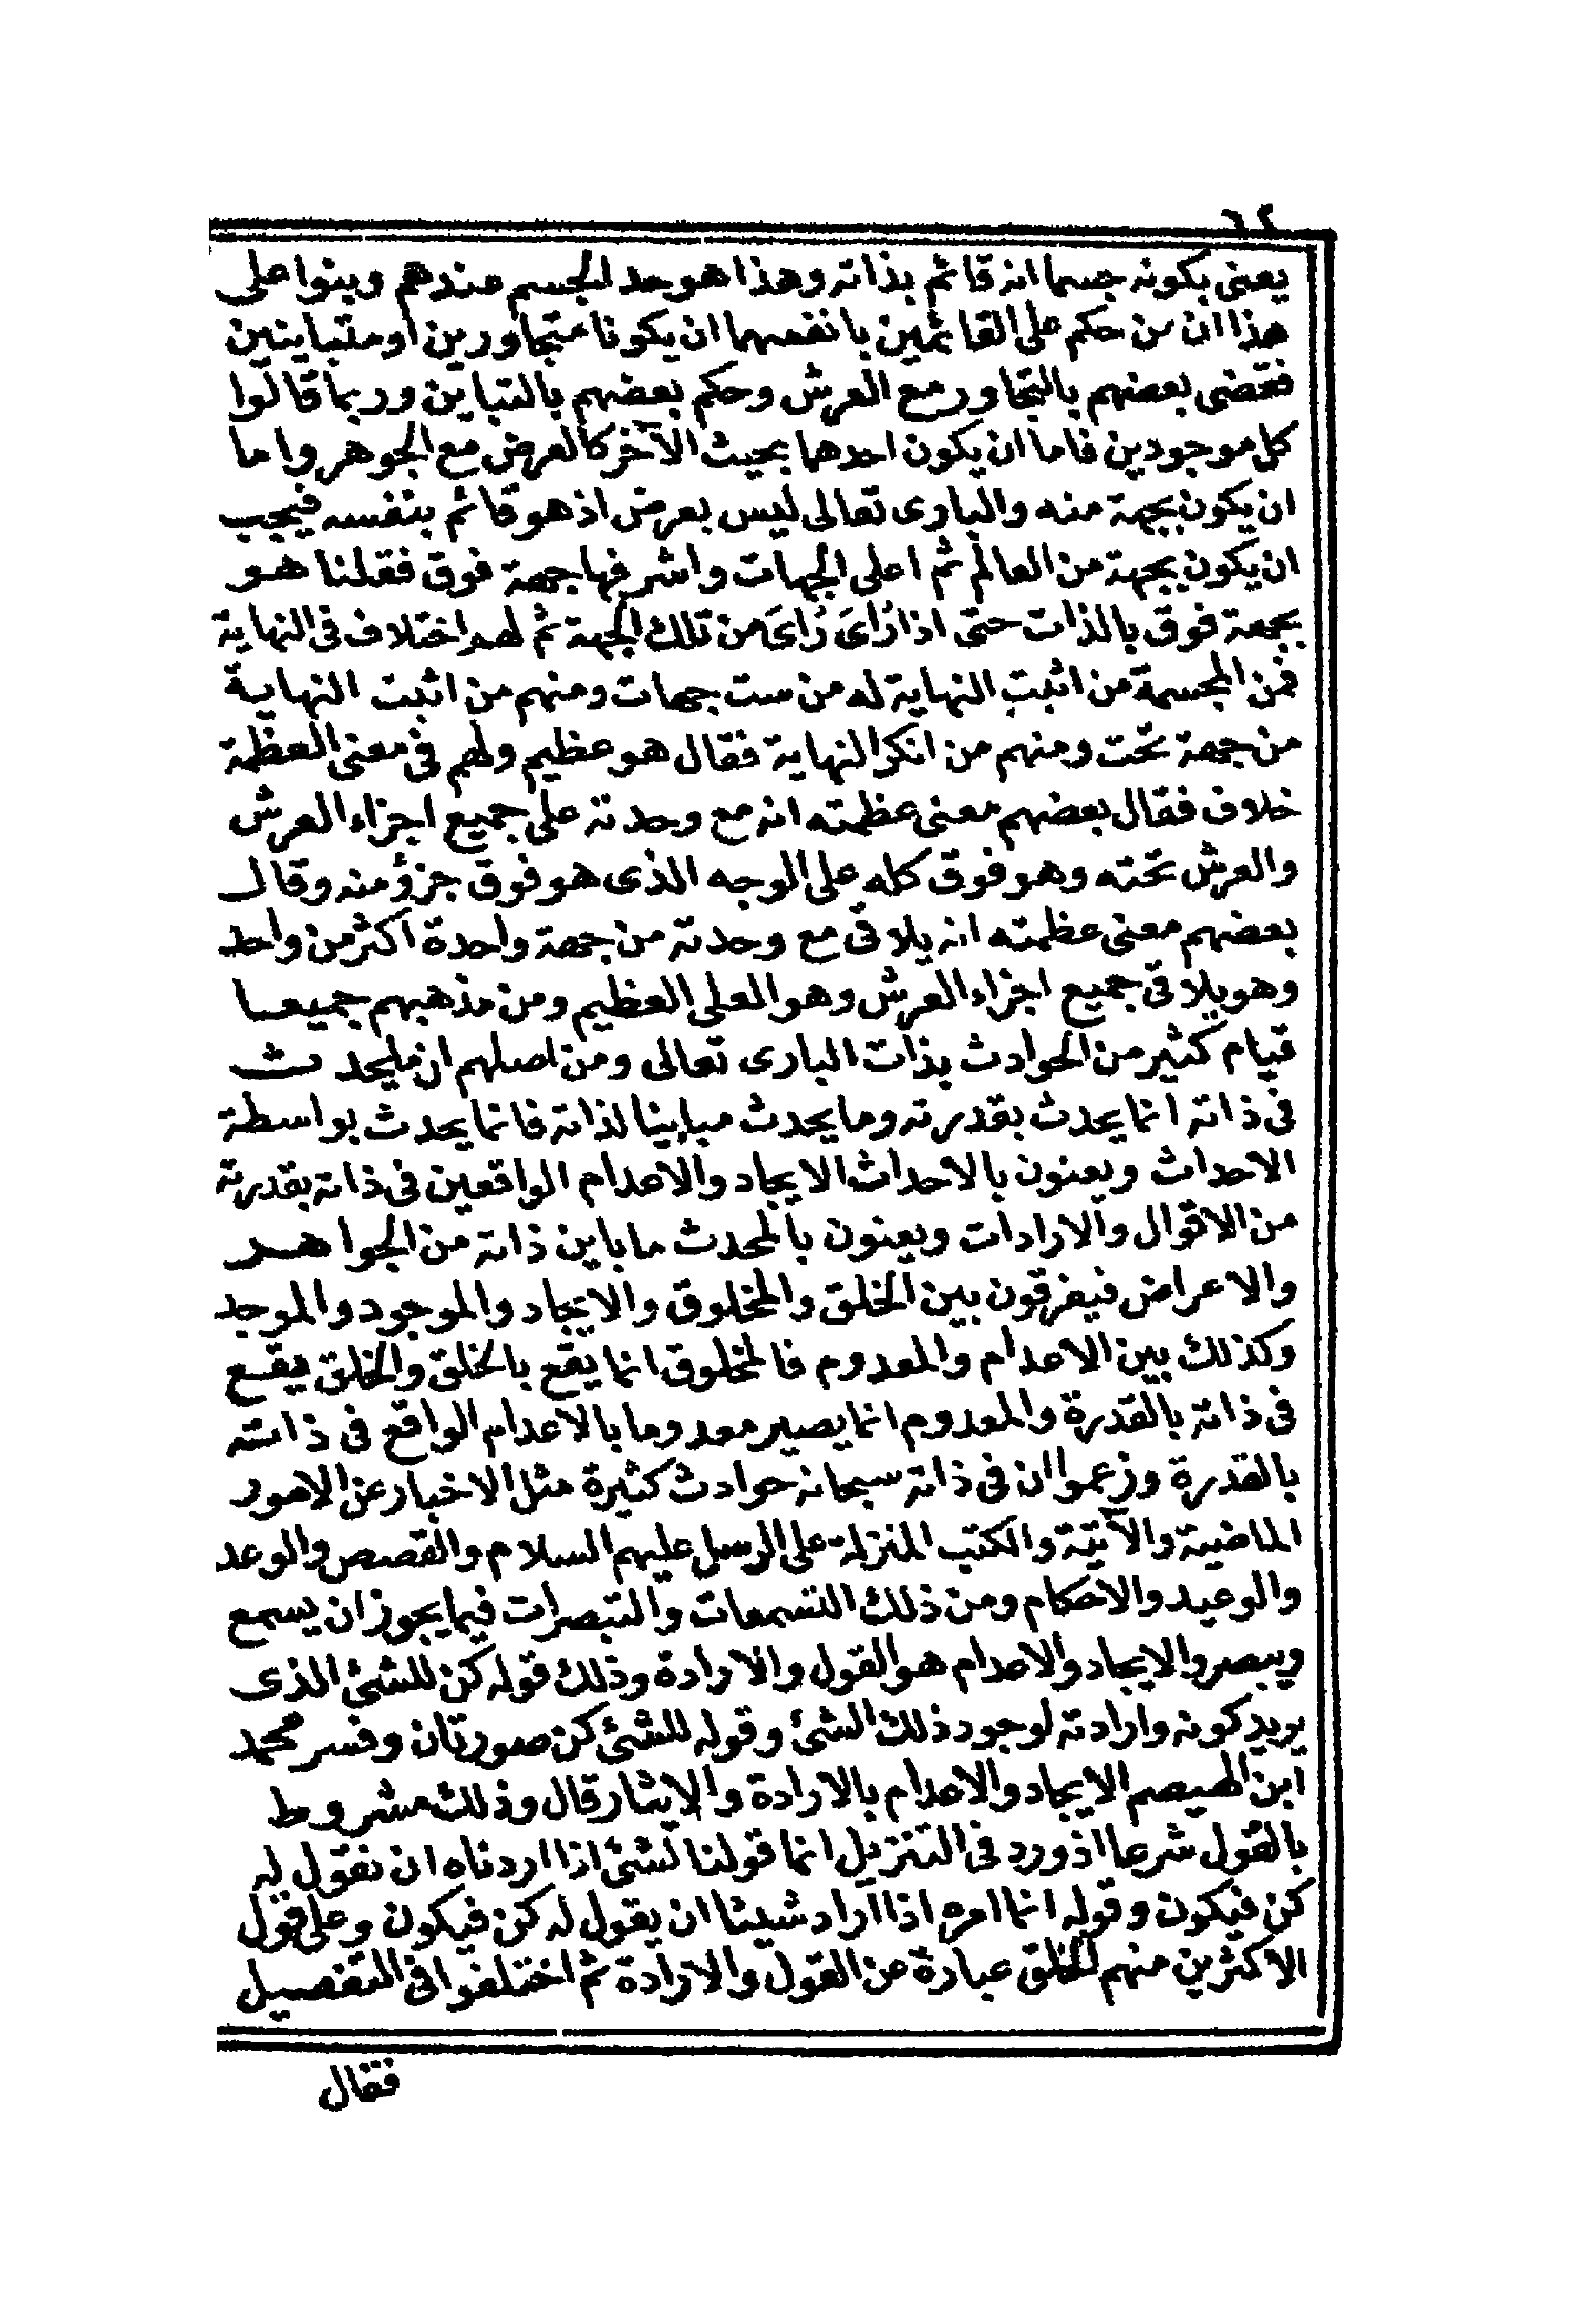 ٦٢
يعنى بكونه جسما انه قائم بذاته وهذا هو حد الجسم عندهم وبنوا على
هذا ان من حكم على القائمين بانفسهما ان يكونا متجاورين او متباينين
فقضى بعضهم بالتجاور مع العرش وحكم بعضهم بالتباين وربما قالوا
كل موجودين فاما ان يكون احدهما بحيث الآخر كالعرض مع الجوهر واما
ان يكون بجهة منه والبارى تعالى ليس بعرض اذ هو قائم بنفسه فيجب
ان يكون بجهة من العالم ثم اعلى الجهات واشرفها جهة فوق فقلنا هو
بجهة فوق بالذات حتى اذا رُاىَ رُاىَ من تلك الجهة ثم لهم اختلاف فى النهاية
فمن المجسمة من اثبت النهاية له من ست جهات ومنهم من اثبت النهاية
من جهة تحت ومنهم من انكر النهاية فقال هو عظيم ولهم فى معنى العظمة
خلاف فقال بعضهم معنى عظمته انه مع وحدته على جميع اجزاء العرش
والعرش تحته وهو فوق كله على الوجه الذى هو فوق جزؤ منه وقال
بعضهم معنى عظمته انه يلاقى مع وحدته من جهة واحدة اكثر من واحد
وهو يلاقى جميع اجزاء العرش وهو العلى العظيم ومن مذهبهم جميعا
قيام كثير من الحوادث بذات البارى تعالى ومن اصلهم ان ما يحدث
فى ذاته انما يحدث بقدرته وما يحدث مباينا لذاته فانما يحدث بواسطة
الاحداث ويعنون بالاحداث الايجاد والاعدام الواقعين فى ذاته بقدرته
من الاقوال والارادات ويعنون بالمحدث ما باين ذاته من الجواهر
والاعراض فيفرقون بين الخلق والمخلوق والايجاد والموجود والموجد
وكذلك بين الاعدام والمعدوم فالمخلوق انما يقع بالخلق والخلق يقع
فى ذاته بالقدرة والمعدوم انما يصير معدوما بالاعدام الواقع فى ذاته
بالقدرة وزعموا ان فى ذاته سبحانه حوادث كثيرة مثل الاخبار عن الامور
الماضية والآتية والكتب المنزلة على الرسل عليهم السلام والقصص والوعد
والوعيد والاحكام ومن ذلك التسمعات والتبصرات فيما يجوز ان يسمع
ويبصر والايجاد والاعدام هو القول والارادة وذلك قوله كن للشئ الذى
يريد كونه وارادته لوجود ذلك الشئ وقوله للشئ كن صورتان وفسر محمد
ابن الهيصم الايجاد والاعدام بالارادة والايثار قال وذلك مشروط
بالقول شرعا اذ ورد فى التنزيل انما قولنا لشئ اذا اردناه ان نقول له
كن فيكون وقوله انما امره اذا اراد شيئا ان يقول له كن فيكون وعلى قول
الاكثرين منهم الخلق عبارة عن القول والارادة ثم اختلفوا فى التفصيل
فقال